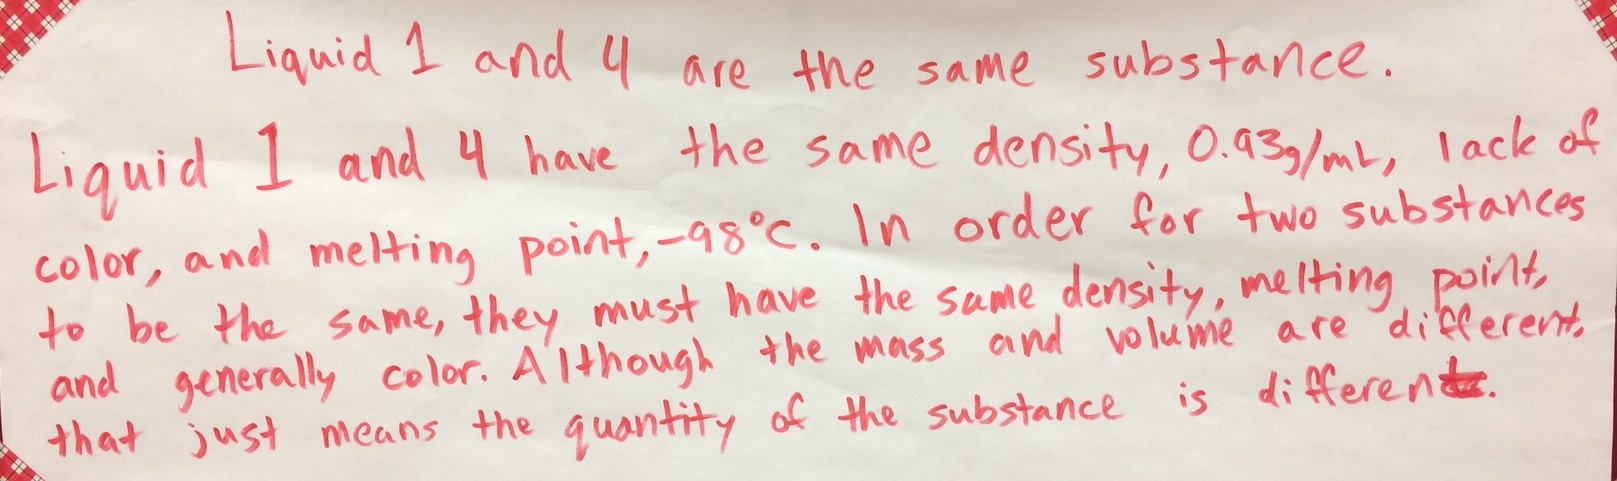 Liquid 1 and 4 are the same substance.
Liquid 1 and 4 have the same density, 0.93g/mL, lack of
color, and melting point, -98°C. In order for two substances
to be the same, they must have the same density, melting point,
and generally color. Although the mass and volume are different,
that just means the quantity of the substance is different.